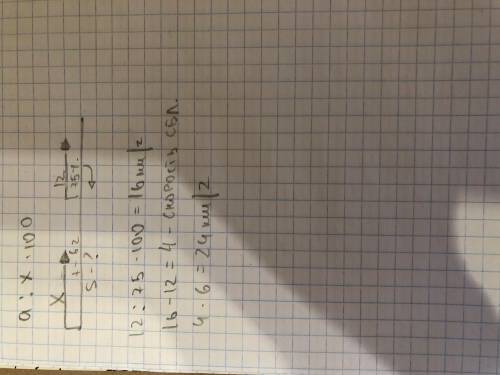 a : x · 100
X 12
t - 6 г 75 %.
S - ?
12 : 75 · 100 = 16 км/г
16 - 12 = 4 - скорость сбл.
4 · 6 = 24 км/г